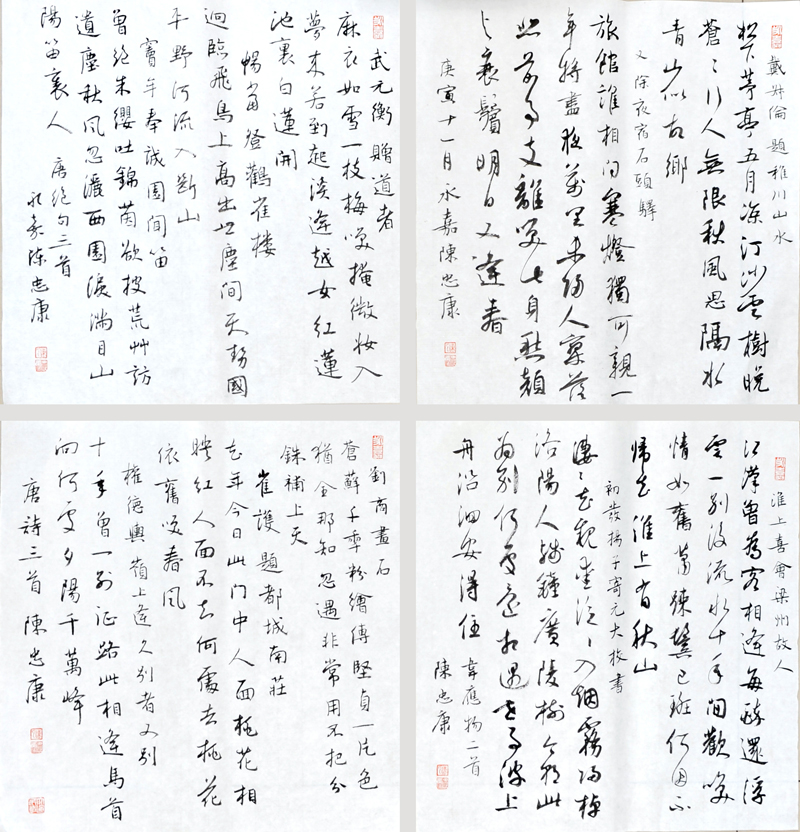 武元衡贈道者
麻衣如雪一枝梅笑掩微妝入
夢來若到越溪逢越女紅蓮
池裏白蓮開
暢當登鸛雀樓
迥臨飛鳥上高出世塵間天勢圍
平野河流入斷山
竇牟奉誠園聞笛
曾絕朱纓吐錦茵欲披荒艸訪
遺塵秋風忽灑西園淚滿目山
陽笛裏人 唐絕句三首
永嘉陈忠康
戴叔倫題稚川山水
松下茅亭五月涼汀沙雲樹晚
蒼〻行人無限秋風思隔水
青山似故鄉
又除夜宿石頭驛
旅館誰相問寒燈獨可親一
年將盡夜萬里未歸人寥落
悲前事支離笑此身愁顏
与衰鬢明日又逢春
庚寅十一月永嘉陳忠康
劉商畫石
蒼蘚千年粉繪傳堅貞一片色
猶全那知忽遇非常用不把分
銖補上天
崔護題都城南莊
去年今日此門中人面桃花相
映紅人面不知何處去桃花
依舊笑春風
權德輿嶺上逢久別者又別
十年曾一別征路此相逢馬首
向何處夕陽千萬峰
唐詩三首陳忠康
淮上喜會梁州故人
江漢曾為客相逢每醉還浮
雲一別後流水十年間歡笑
情如舊蕭疎鬢已斑何因不
歸去淮上有秋山
初發揚子寄元大校書
淒〻去親愛泛〻入煙霧歸棹
洛陽人殘鐘廣陵樹今朝此
為別何處還相遇世事波上
舟沿洄安得住
韋應物二首
陳忠康